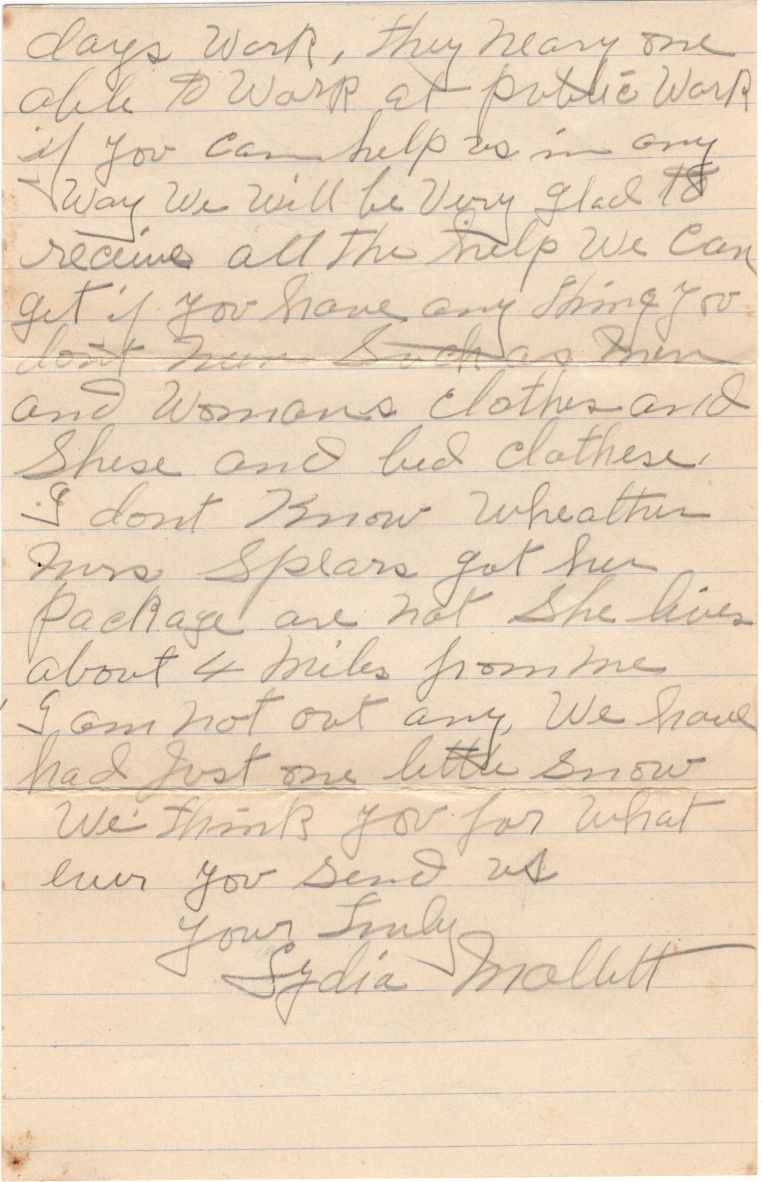 days Work, they neary one
able to Work at public Work
if you can help us in any
Way We Will be Very glad to
receive all the help We Can
get if you have any thing you
dont Such as men
and Womans clothes and
Shese and bed clothese.
I dont Know Wheather
Mrs Spears got her
Package are not She lives
about 4 miles from me
I am not out any. We have
had Just one little Snow
We think you for What
ever you Send us
your Truly
Lydia Mollett